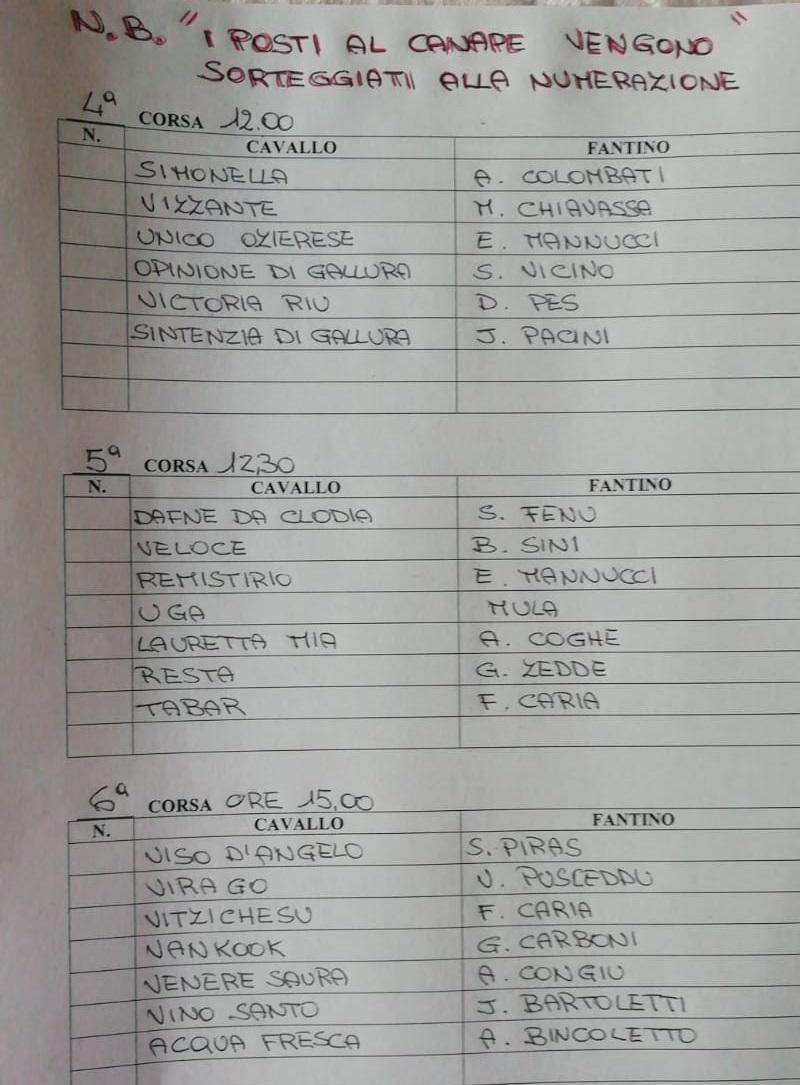 N.B. "I POSTI AL CANAPE VENGONO"
SORTEGGIATI ALLA NUMERAZIONE
4ª CORSA 12.00
N. CAVALLO FANTINO
SIMONELLA A. COLOMBATI
VIZZANTE M. CHIAVASSA
UNICO OZIERESE E. MANNUCCI
OPINIONE DI GALLURA S. VICINO
VICTORIA RIU D. PES
SINTENZIA DI GALLURA J. PACINI
5ª CORSA 12,30
N. CAVALLO FANTINO
DAFNE DA CLODIA S. FENU
VELOCE B. SINI
REMISTIRIO E. MANNUCCI
UGA MULA
LAURETTA MIA A. COGHE
RESTA G. ZEDDE
TABAR F. CARIA
6ª CORSA ORE 15,00
N. CAVALLO FANTINO
VISO D'ANGELO S. PIRAS
VIRAGO V. PUSCEDDU
VITZICHESU F. CARIA
NANKOOK G. CARBONI
VENERE SAURA A. CONGIU
VINO SANTO J. BARTOLETTI
ACQUA FRESCA A. BINCOLETTO